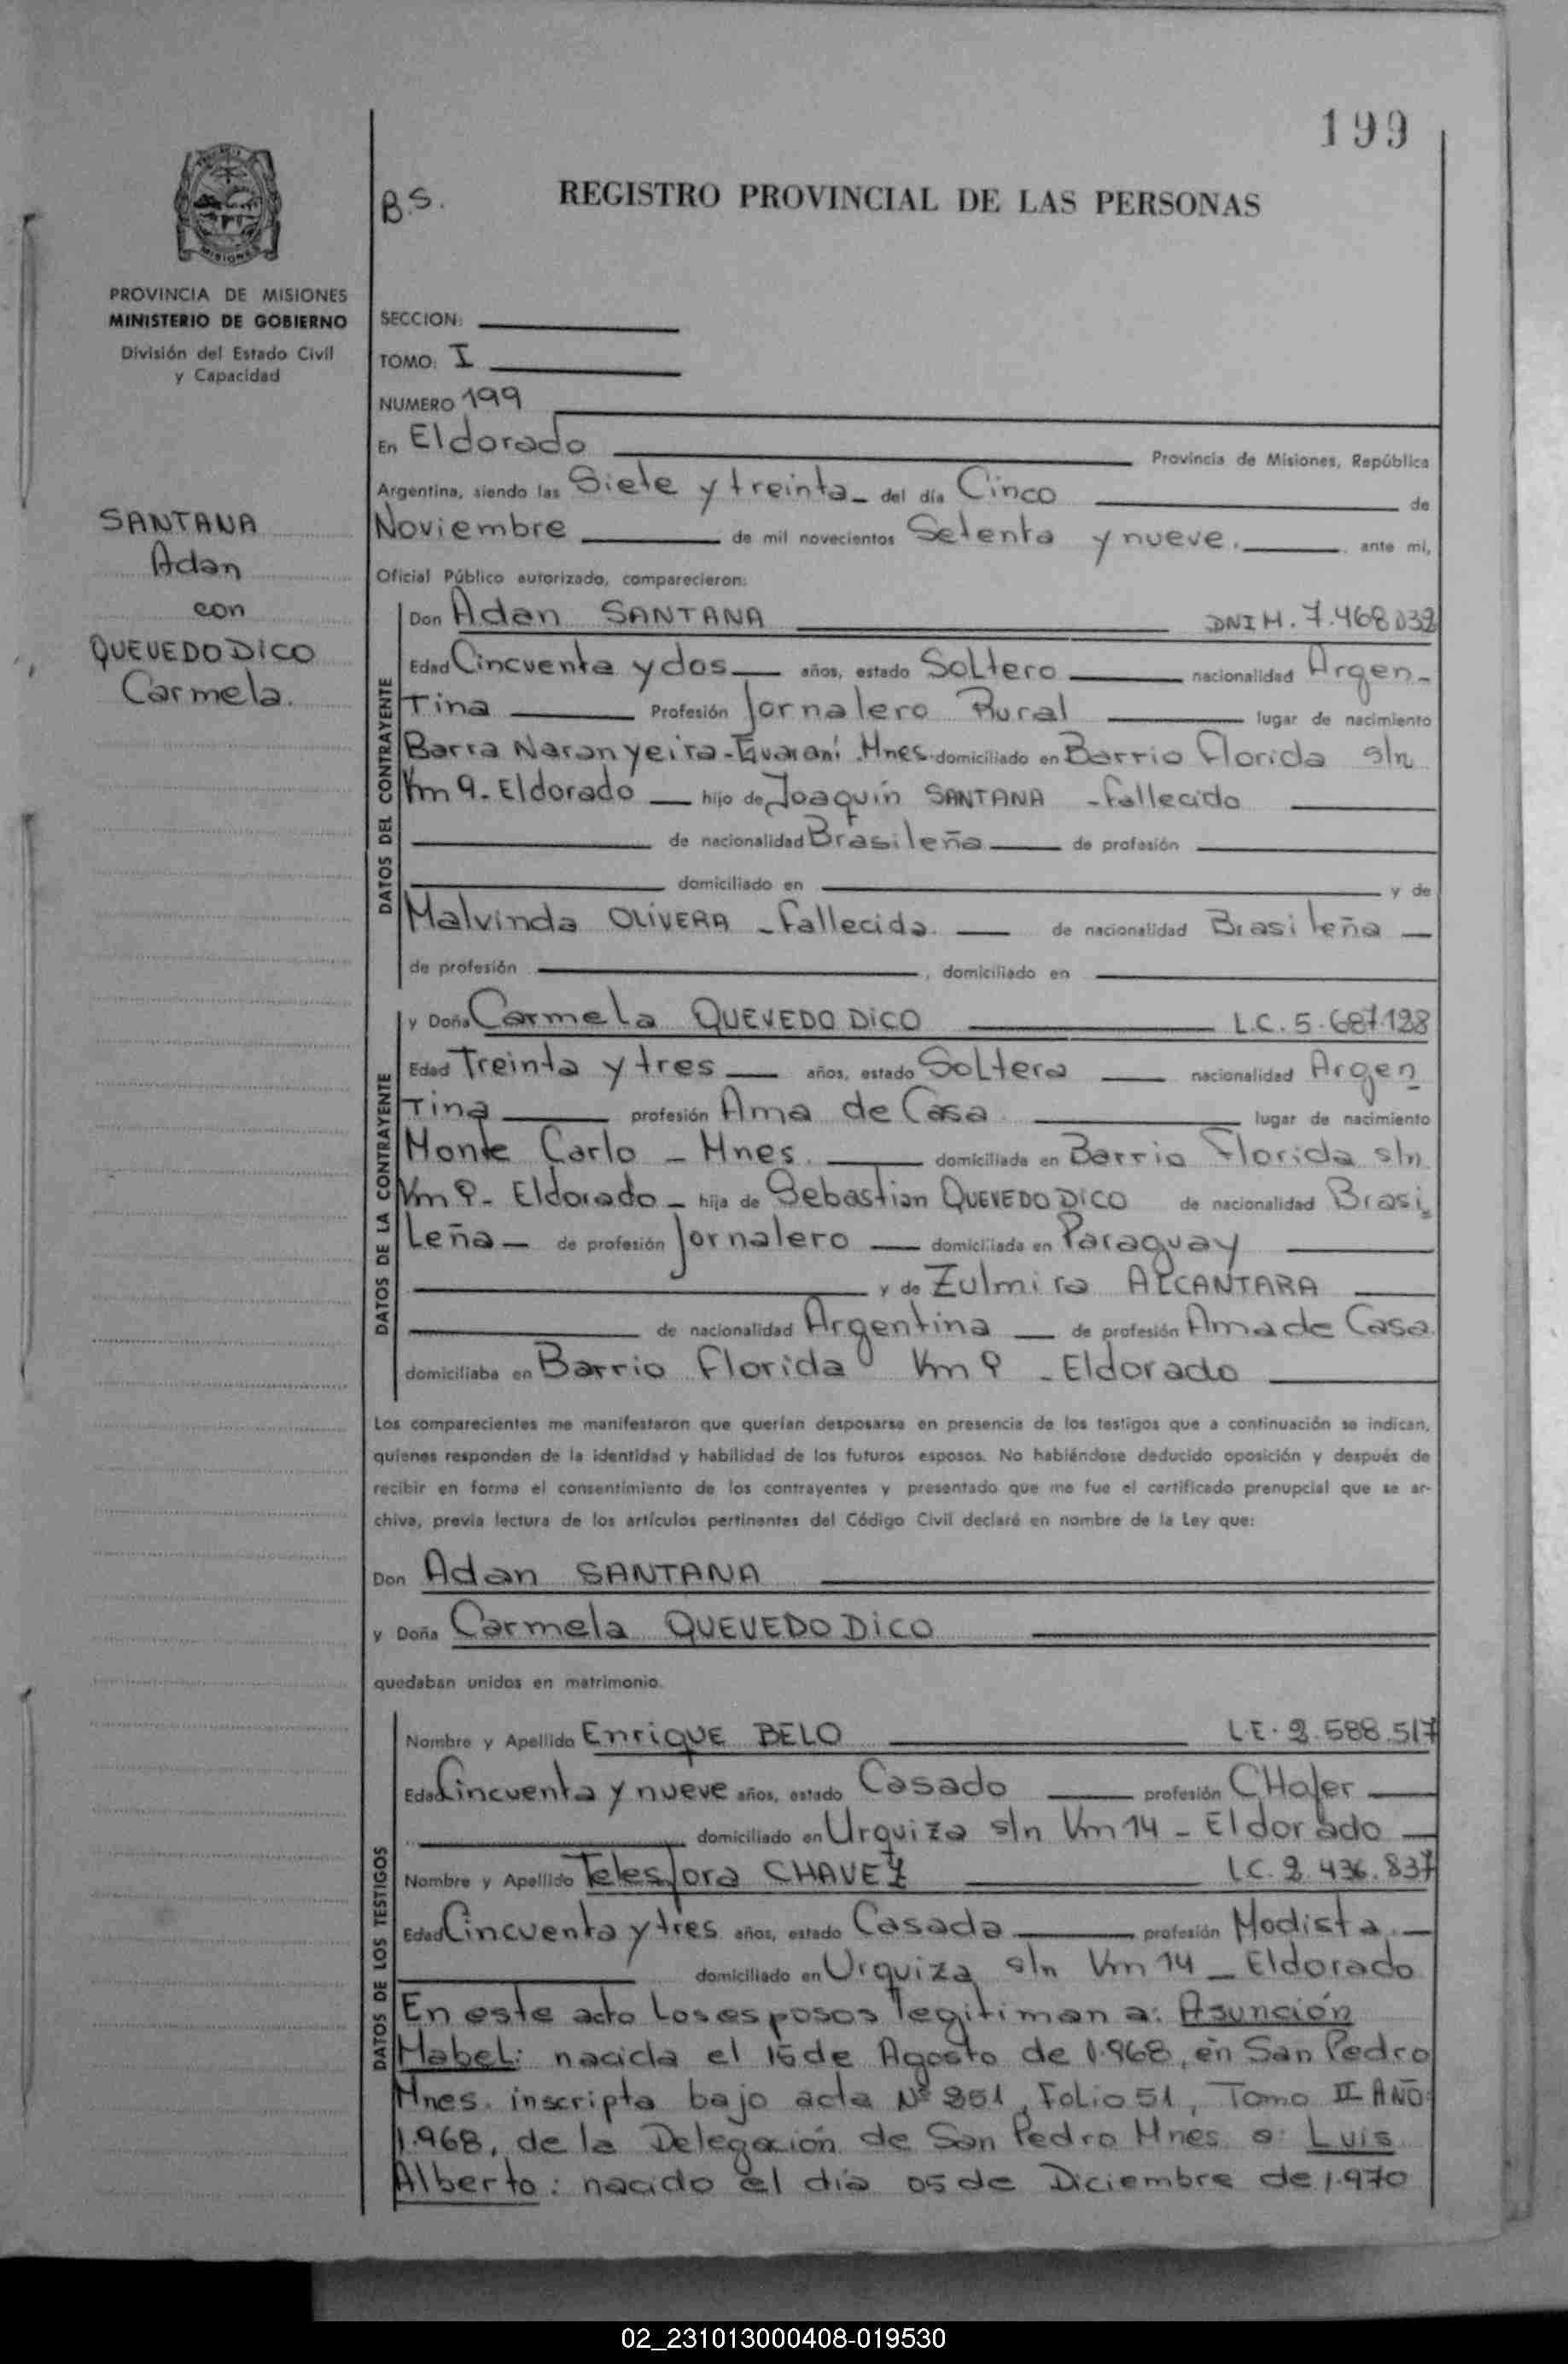 199
B.S. REGISTRO PROVINCIAL DE LAS PERSONAS
PROVINCIA DE MISIONES
MINISTERIO DE GOBIERNO
División del Estado Civil
y Capacidad
SANTANA
Adan
con
QUEVEDO DICO
Carmela.
SECCION:
TOMO: I
NUMERO 199
En Eldorado Provincia de Misiones, República
Argentina, siendo las Siete y treinta del día Cinco de
Noviembre de mil novecientos Setenta y nueve. ante mi,
Oficial Público autorizado, comparecieron:
DATOS DEL CONTRAYENTE
Don Adan SANTANA DNI M. 7.468.032
Edad Cincuenta y dos años, estado Soltero nacionalidad Argen-
Tina Profesión Jornalero Rural lugar de nacimiento
Barra Naranyeira-Guaraní .Mnes. domiciliado en Barrio Florida s/n
Km 9. Eldorado hijo de Joaquín SANTANA - fallecido
de nacionalidad Brasileña de profesión
domiciliado en y de
Malvinda OLIVERA - fallecida. de nacionalidad Brasileña
de profesión , domiciliado en
DATOS DE LA CONTRAYENTE
y Doña Carmela QUEVEDO DICO L.C. 5.687.128
Edad Treinta y tres años, estado Soltera nacionalidad Argen
Tina profesión Ama de Casa lugar de nacimiento
Monte Carlo - Mnes. domiciliada en Barrio Florida s/n
Km 9- Eldorado - hija de Sebastian QUEVEDO DICO de nacionalidad Brasi
Leña de profesión Jornalero domiciliada en Paraguay
y de Zulmira ALCANTARA
de nacionalidad Argentina de profesión Ama de Casa.
domiciliaba en Barrio Florida Km 9 - Eldorado
Los comparecientes me manifestaron que querían desposarse en presencia de los testigos que a continuación se indican,
quienes responden de la identidad y habilidad de los futuros esposos. No habiéndose deducido oposición y después de
recibir en forma el consentimiento de los contrayentes y presentado que me fue el certificado prenupcial que se ar-
chiva, previa lectura de los artículos pertinentes del Código Civil declaré en nombre de la Ley que:
Don Adan SANTANA
y Doña Carmela QUEVEDO DICO
quedaban unidos en matrimonio.
DATOS DE LOS TESTIGOS
Nombre y Apellido Enrique BELO L.E. 2.588.517
Edad Cincuenta y nueve años, estado Casado profesión CHofer
domiciliado en Urquiza s/n Km 14 - Eldorado
Nombre y Apellido Telesfora CHAVEZ LC. 2.436.837
Edad Cincuenta y tres años, estado Casada profesión Modista.
domiciliado en Urquiza s/n Km 14 - Eldorado
En este acto los esposos legitiman a: Asunción
Mabel: nacida el 15 de Agosto de 1.968, en San Pedro
Mnes. inscripta bajo acta Nº 251, Folio 51, Tomo II AÑO:
1.968, de la Delegación de San Pedro Mnes. a: Luis
Alberto: nacido el día 05 de Diciembre de 1.970
02_231013000408-019530